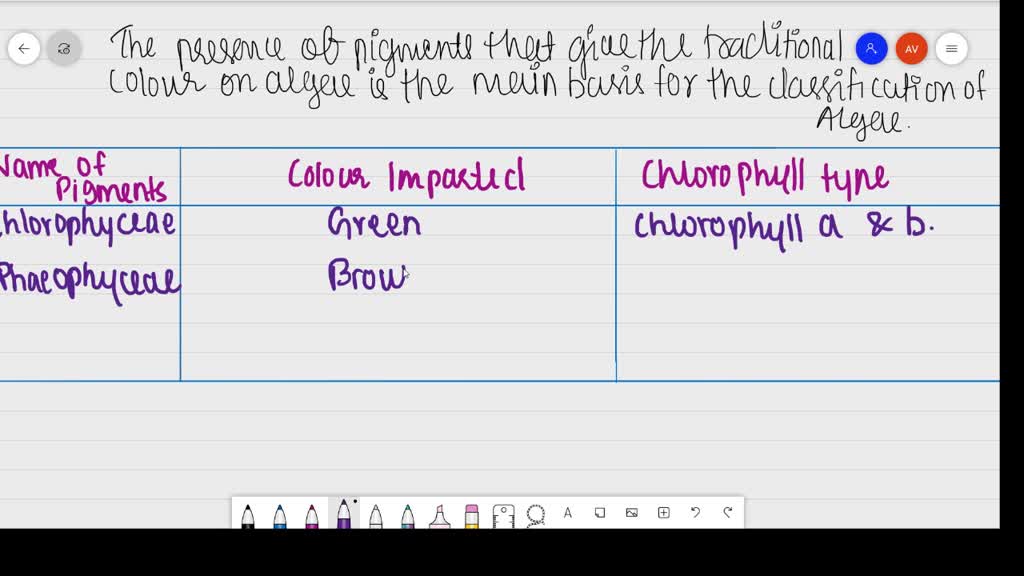 The presence of pigments that give the traditional
colour on algae is the main basis for the classification of
Algae.
AV
Name of
Pigments
Colour Imparted
Chlorophyll type
Chlorophyceae
Green
Chlorophyll a & b.
Phaeophyceae
Brow
A